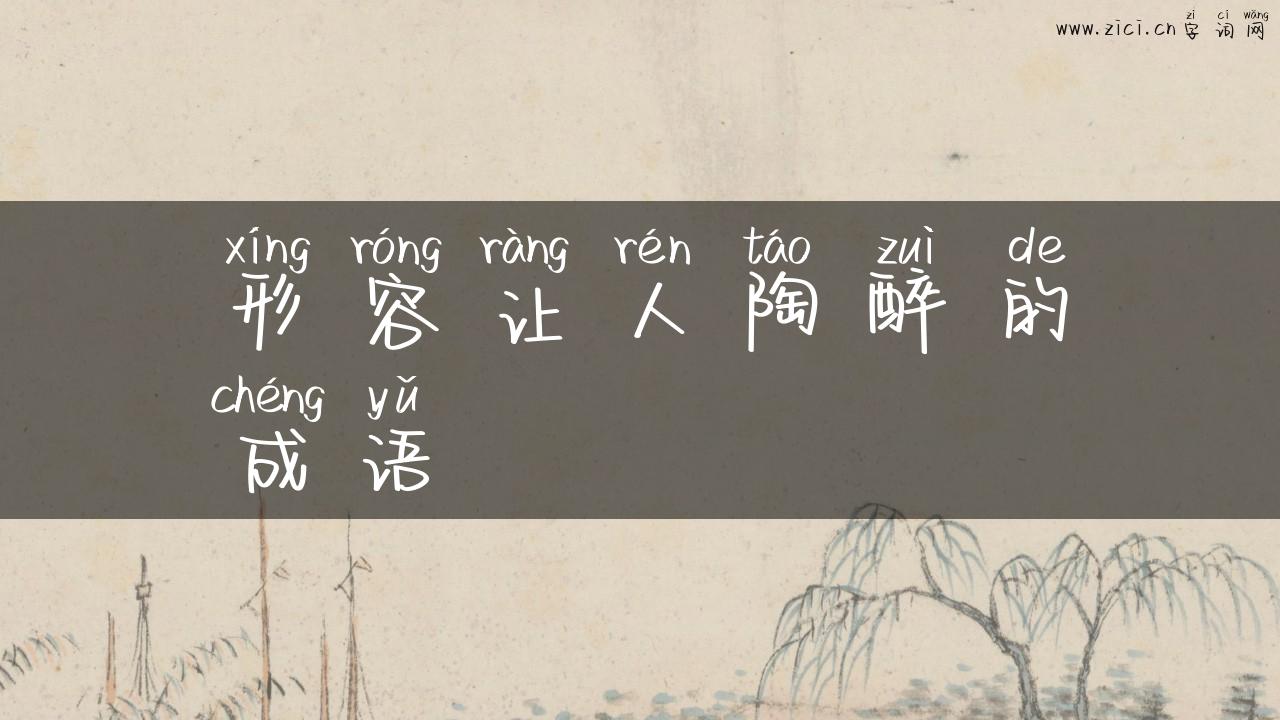 zì cí wǎng
www.zici.cn 字词网
xíng róng ràng rén táo zuì de
形容让人陶醉的
chéng yǔ
成语